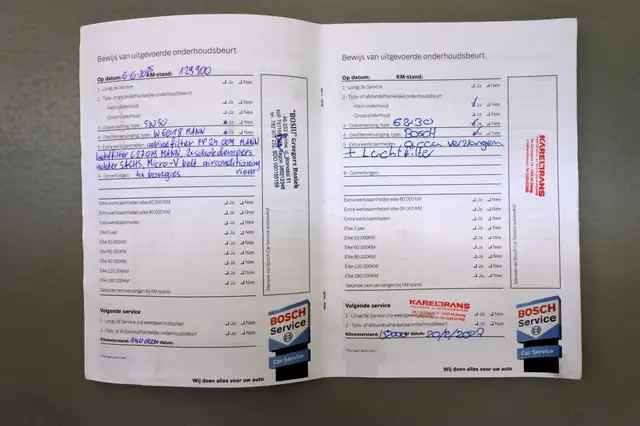 Bewijs van uitgevoerde onderhoudsbeurt
Op datum: 6-6-2025 KM-stand: 129900
1 - LongLife Service Ja Nee
2 - Tijds- of afstandsafhankelijke onderhoudsbeurt
- Klein onderhoud Ja Nee
- Groot onderhoud Ja Nee
3 - Olieverversing, type: 5W30 Ja Nee
4 - Oliefilterverversing, type: W 6018 MANN Ja Nee
5 - Extra werkzaamheden: cabinefilter FP 24 004 MANN
luchtfilter C27019 MANN, 2x schokdempers
achter SACHS, Micro-V belt airconditioning
6 - Opmerkingen: 4x bougies riem
Extra werkzaamheden elke 60.000 KM Ja Nee
Extra werkzaamheden elke 90.000 KM Ja Nee
Extra werkzaamheden: Ja Nee
Elke 2 jaar Ja Nee
Elke 30.000KM Ja Nee
Elke 60.000 KM Ja Nee
Elke 90.000 KM Ja Nee
Elke 120.000 KM Ja Nee
Elke 180.000 KM Ja Nee
Getande riem vervangen bij KM-stand:
"BOSIL" Grzegorz Bosiek
Stempel van Bosch Car Service autobedrijf
Volgende service
1 - LongLife Service (na weergave in display)
2 - Tijds- of afstandsafhankelijke onderhoudsbeurt Ja Nee
Kilometerstand: 140000 of datum:
BOSCH
Service
Car Service
Wij doen alles voor uw auto
Bewijs van uitgevoerde onderhoudsbeurt
Op datum: KM-stand:
1 - LongLife Service Ja Nee
2 - Tijds- of afstandsafhankelijke onderhoudsbeurt
- Klein onderhoud Ja Nee
- Groot onderhoud Ja Nee
3 - Olieverversing, type: Ja Nee
4 - Oliefilterverversing, type: BOSCH Ja Nee
5 - Extra werkzaamheden: accu vervangen
+ Luchtfilter
6 - Opmerkingen:
Extra werkzaamheden elke 60.000 KM Ja Nee
Extra werkzaamheden elke 90.000 KM Ja Nee
Extra werkzaamheden: Ja Nee
Elke 2 jaar Ja Nee
Elke 30.000KM Ja Nee
Elke 60.000 KM Ja Nee
Elke 90.000 KM Ja Nee
Elke 120.000 KM Ja Nee
Elke 180.000 KM Ja Nee
Getande riem vervangen bij KM-stand:
KARELTRANS
Stempel van Bosch Car Service autobedrijf
Volgende service
KARELTRANS
1 - LongLife Service (na weergave in display)
2 - Tijds- of afstandsafhankelijke onderhoudsbeurt Ja Nee
Kilometerstand: 152000 of datum: 20/2/2027
BOSCH
Service
Car Service
Wij doen alles voor uw auto